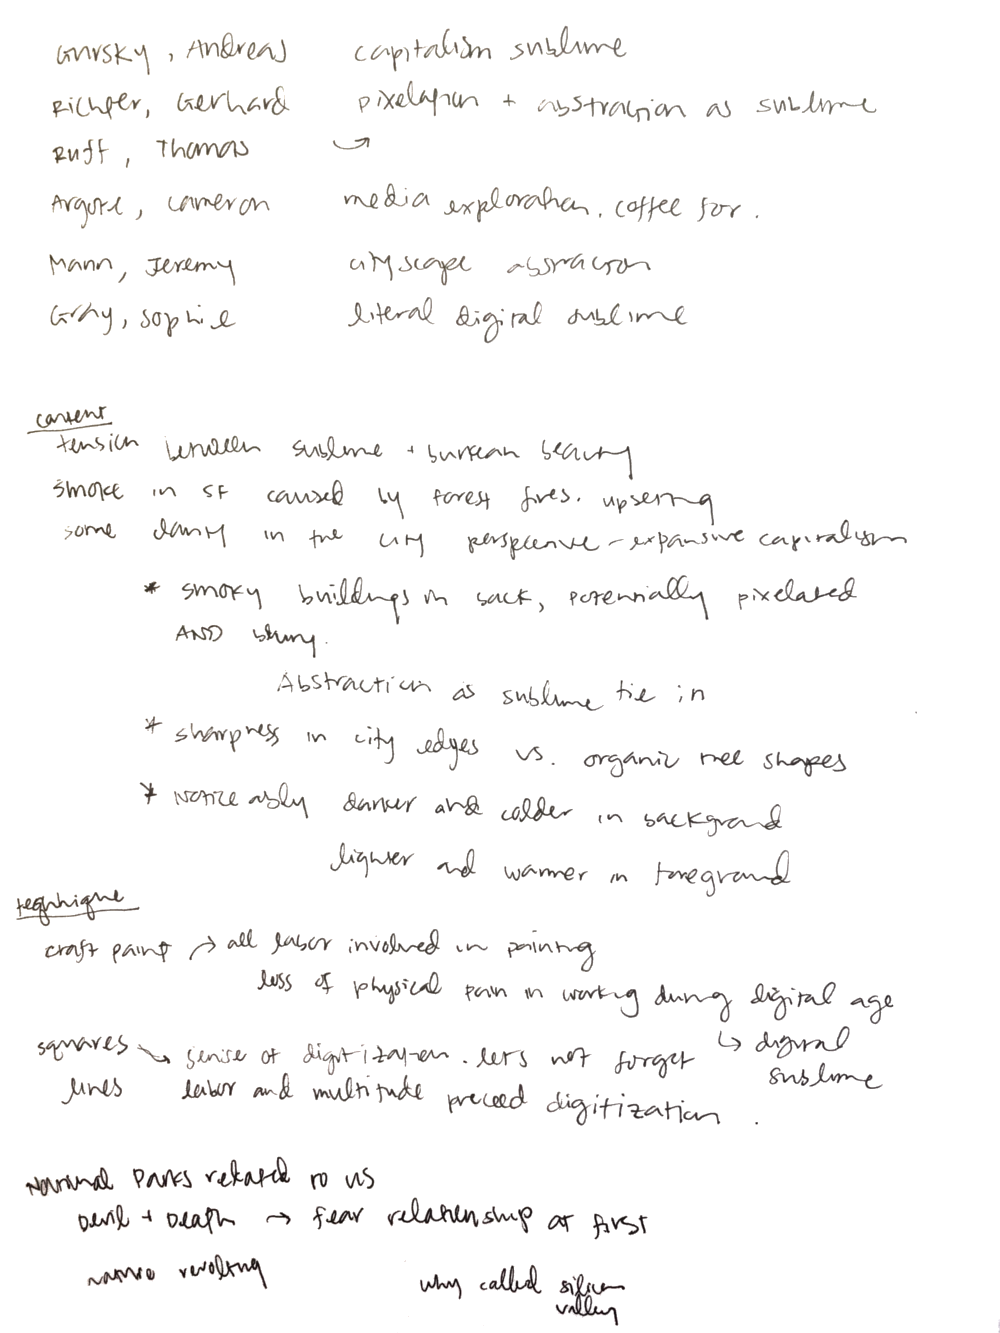 Gursky, Andreas capitalism sublime
Richter, Gerhard pixelation + abstraction as sublime
Ruff, Thomas
Argote, Cameron media exploration. coffee for.
Mann, Jeremy cityscape abstraction
Gray, Sophie literal digital sublime
content
tension between sublime + burkean beauty
smoke in SF caused by forest fires. upsetting
some clarity in the city perspective - expansive capitalism
* smoky buildings in back, potentially pixelated
AND blurry.
Abstraction as sublime tie in
* sharpness in city edges vs. organic tree shapes
* Noticeably darker and colder in background
lighter and warmer in foreground
technique
craft paint → all labor involved in painting
loss of physical pain in working during digital age
squares → sense of digitization. let's not forget ↳ digital
lines labor and multitude preceed digitization. sublime
National Parks related to US
Devil + Death → fear relationship at first
nature revolting why called silicon
valley